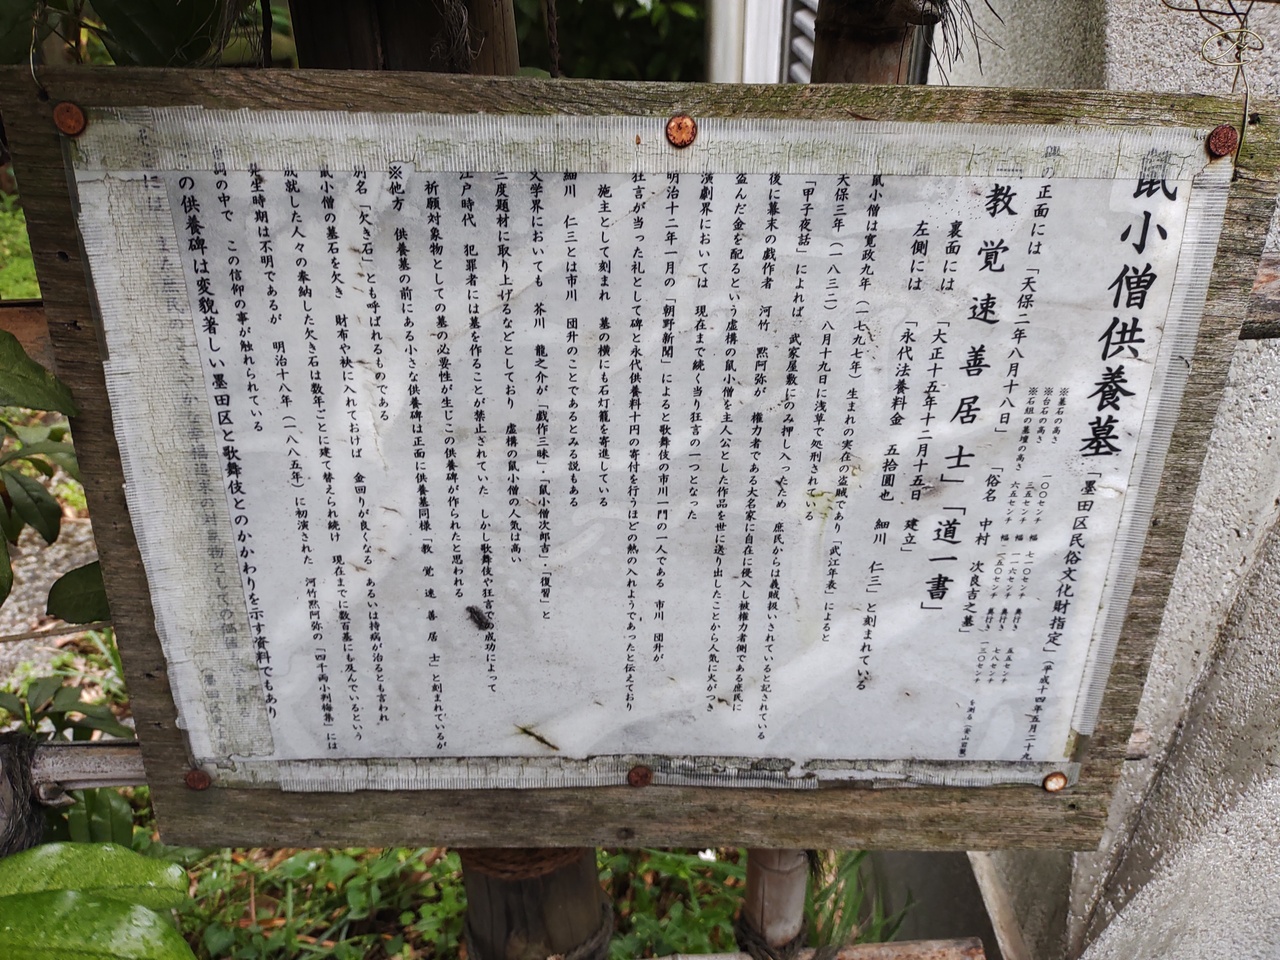 鼠小僧供養墓「墨田区民俗文化財指定」(平成十四年五月二十九
※墓石の高さ 一〇〇センチ 幅 七一〇センチ 奥行き 五五センチ
※台石の高さ 三五センチ 幅 一一六センチ 奥行き 七八センチ
※石組の墓壇の高さ 六五センチ 幅 一五〇センチ 奥行き 一三〇センチ
を測る(安山岩製)
の正面には「天保二年八月十八日」「俗名 中村 次良吉之墓」
教覚速善居士」「道一書」
裏面には「大正十五年十二月十五日 建立」
左側には「永代法養料金 五拾圓也 細川 仁三」と刻まれている
鼠小僧は寛政九年(一七九七年)生まれの実在の盗賊であり「武江年表」によると
天保三年(一八三二)八月十九日に浅草で処刑されている
「甲子夜話」によれば 武家屋敷にのみ押し入ったため 庶民からは義賊扱いされていると記されている
後に幕末の戯作者 河竹 黙阿弥が 権力者である大名家に自在に侵入し被権力者側である庶民に
盗んだ金を配るという虚構の鼠小僧を主人公とした作品を世に送り出したことから人気に火がつき
演劇界においては 現在まで続く当り狂言の一つとなった
明治十二年一月の「朝野新聞」によると歌舞伎の市川一門の一人である 市川 団升が
狂言が当った礼として碑と永代供養料十円の寄付を行うほどの熱の入れようであったと伝えており
施主として刻まれ 墓の横にも石灯籠を寄進している
細川 仁三とは市川 団升のことであるとみる説もある
文学界においても 芥川 龍之介が「戯作三昧」・「鼠小僧次郎吉」・「復讐」と
二度題材に取り上げるなどとしており 虚構の鼠小僧の人気は高い
江戸時代 犯罪者には墓を作ることが禁止されていた しかし歌舞伎や狂言での成功によって
祈願対象物としての墓の必要性が生じこの供養碑が作られたと思われる
※他方 供養墓の前にある小さな供養碑は正面に供養墓同様「教 覚 速 善 居 士」と刻まれているが
別名「欠き石」とも呼ばれるものである
鼠小僧の墓石を欠き 財布や袂に入れておけば 金回りが良くなる あるいは持病が治るとも言われ
成就した人々の奉納した欠き石は数年ごとに建て替えられ続け 現在までに数百基にも及んでいるという
発生時期は不明であるが 明治十八年(一八八五年)に初演された 河竹黙阿弥の「四千両小判梅葉」には
詞の中で この信仰の事が触れられている
の供養碑は変貌著しい墨田区と歌舞伎とのかかわりを示す資料でもあり